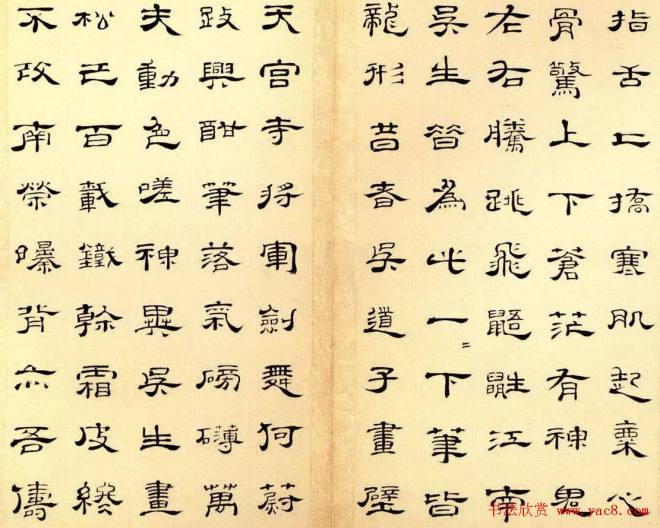 指舌上撟寒肌起粟心
骨驚上下蒼茫有神鬼
左右騰跳飛鼯鼪江南
吳生為此一〻下筆皆
龍形昔春吳道子畫壁
天宮寺將軍劍舞何蔚
跂興酣筆落氣磅礴萬
夫動色嗟神異吳生畫
松已百載鐵幹霜皮終
不改南榮曝背亦吾儔
书法欣赏 www.yac8.com